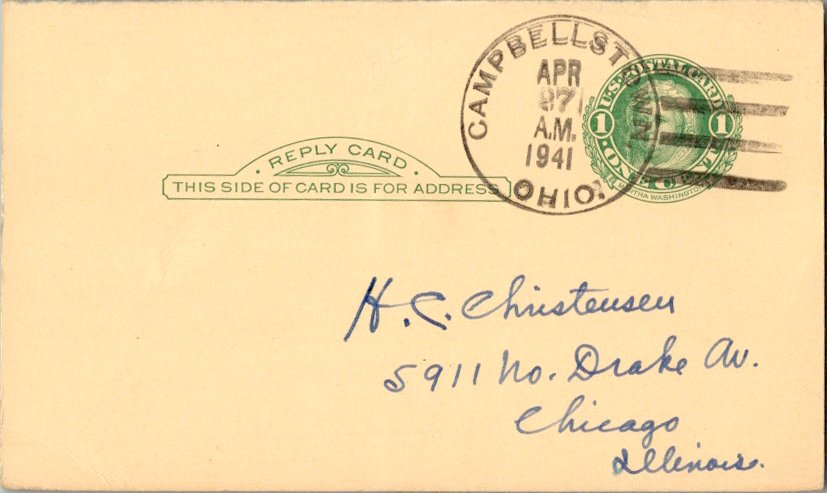 CAMPBELLSTOWN
APR
A.M.
1941
OHIO.
U.S. POSTAL CARD
1 1
ONE CENT
MARTHA WASHINGTON
REPLY CARD
THIS SIDE OF CARD IS FOR ADDRESS
H. C. Christensen
5911 No. Drake Av.
Chicago
Illinois.